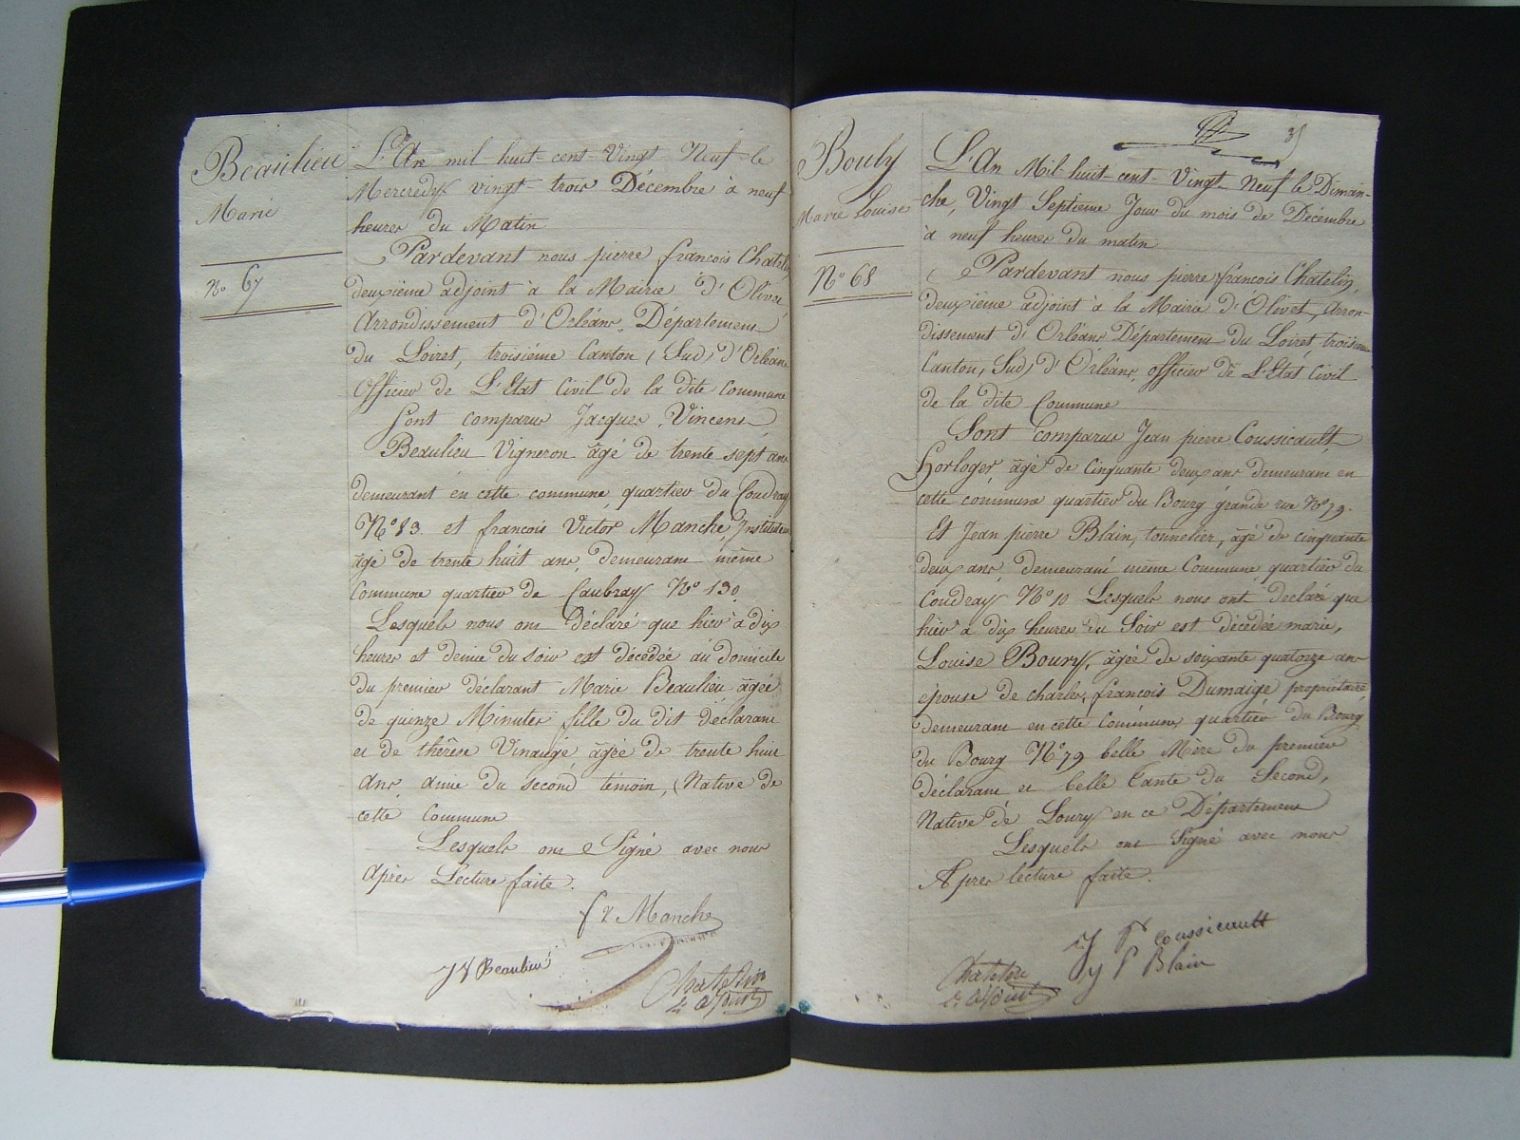 Beaulieu
Marie
No 67
L'An mil huit cent Vingt Neuf le
Mercredy vingt trois Décembre à neuf
heures du Matin
Pardevant nous pierre francois Chatelin
deuxième adjoint à la Mairie d'Olivet
Arrondissement d'Orléans, Département
du Loiret, troisième Canton (Sud) d'Orléans
Officier de L'Etat Civil de la dite Commune
Sont comparus Jacques Vincent
Beaulieu Vigneron âgé de trente sept ans
demeurant en cette commune quartier du Coudray
No 13. et francois Victor Manche, Instituteur
âgé de trente huit ans, demeurant même
Commune quartier de Caubray No 130.
Lesquels nous ont Déclaré que hier à dix
heures et demie du soir est décédée au domicile
du premier déclarant Marie Beaulieu âgée
de quinze Minutes fille du dit déclarant
et de thérèse Vinauge âgée de trente huit
ans, amie du second témoin, (Native de
cette Commune
Lesquels ont Signé avec nous
Après Lecture faite.
f V Manche
J V Beaulieu
Chatelin
adjoint
35
Bouly
Marie Louise
No 68
L'An Mil huit cent Vingt Neuf le Diman-
che, Vingt Septieme Jour du mois de Décembre
à neuf heures du matin
Pardevant nous pierre francois Chatelin,
deuxième adjoint à la Mairie d'Olivet, Arron-
dissement d'Orléans Département du Loiret troisième
Canton, (Sud) d'Orléans, officier de L'Etat Civil
de la dite Commune
Sont Comparus Jean pierre Coussicault
Horloger, âgé de Cinquante deux ans demeurant en
cette commune quartier du Bourg grande rue No 79.
Et Jean pierre Blain, tonnelier, âgé de cinquante
deux ans, demeurant même Commune quartier du
Coudray No 10 Lesquels nous ont declaré que
hier à dix heures du Soir est décédée marie,
Louise Boury, âgée de soixante quatorze ans
épouse de charles, francois Dumaige propriétaire
demeurant en cette Commune, quartier du Bourg
du Bourg No 79 belle Mère du premier
déclarant et belle tante du Second,
Native de Loury en ce Département
Lesquels ont Signé avec nous
Apres lecture faite.
J P Coussicault
J P Blain
Chatelin
adjoint